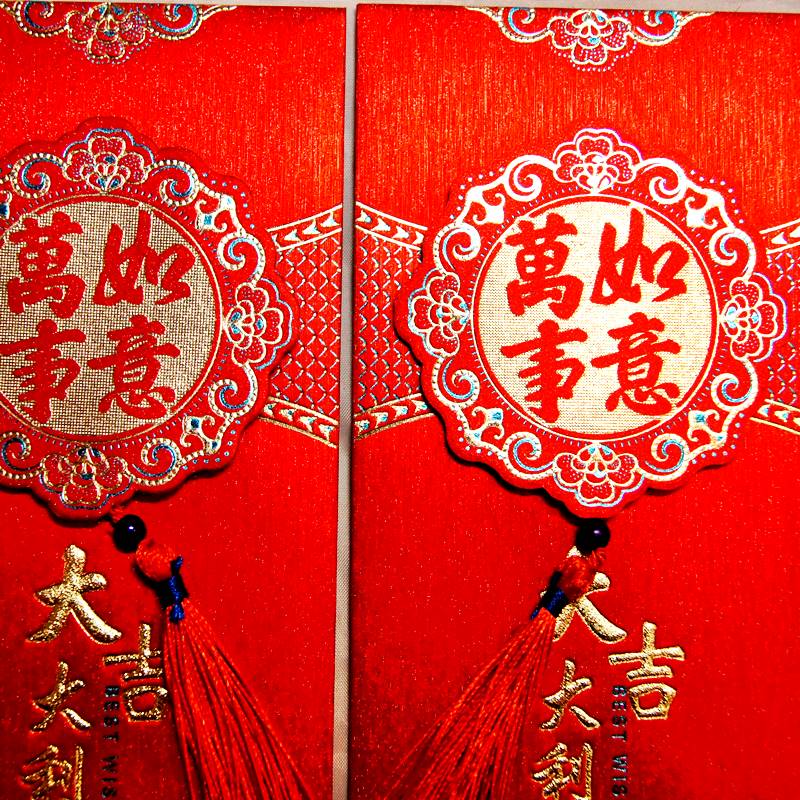 萬如
事意
大
吉
大
利
BEST WIS
萬如
事意
大
吉
大
利
BEST WIS